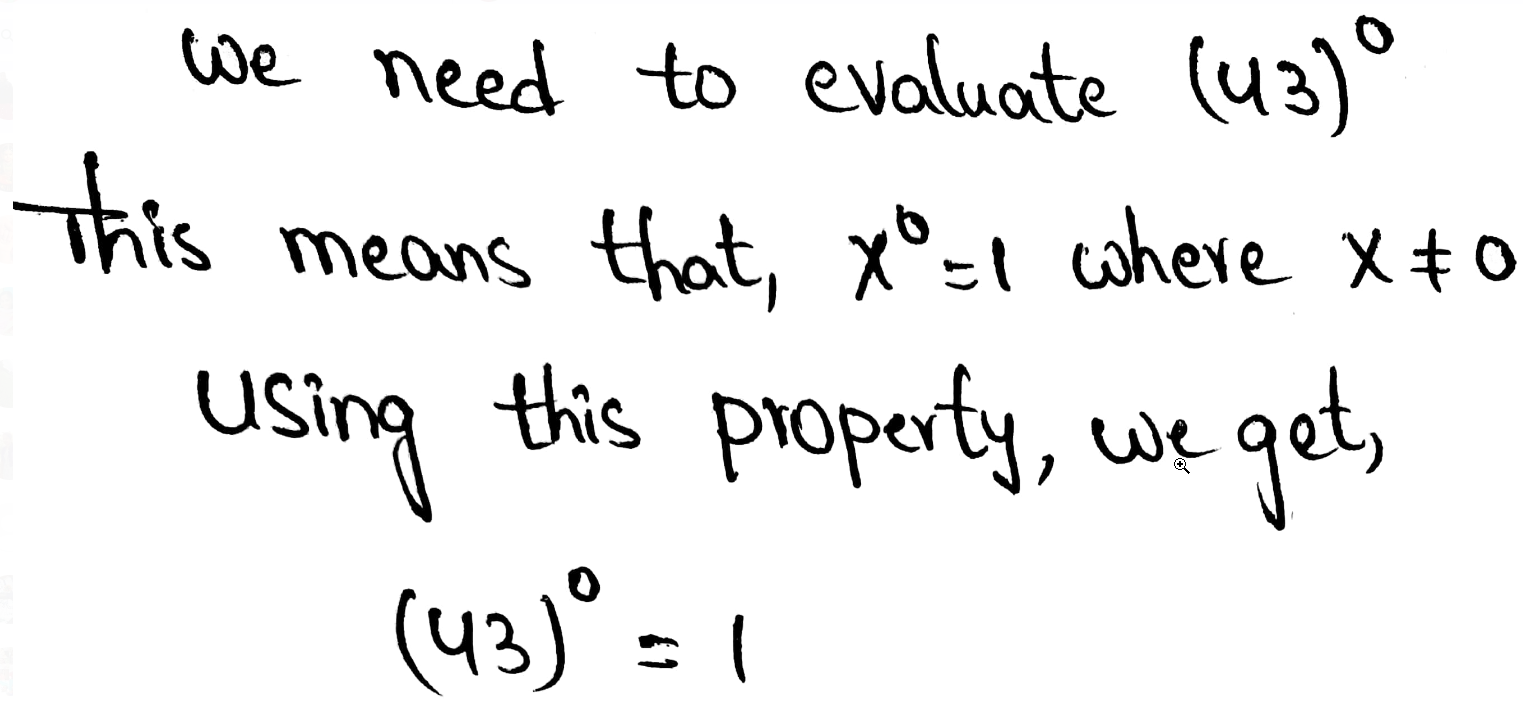 we need to evaluate (43)⁰
This means that, x⁰=1 where x≠0
Using this property, we get,
(43)⁰ = 1